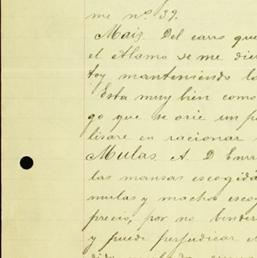 me nº. 39.
Mais. Del carro que
el Alamo se me die
toy manteniendo la
Esta muy bien como
go que se orie un po
lisare en racionar
Mulas. A D. Enri
las mansas escogida
mulas y macho escog
precio, por no vender
y puede perjudicar